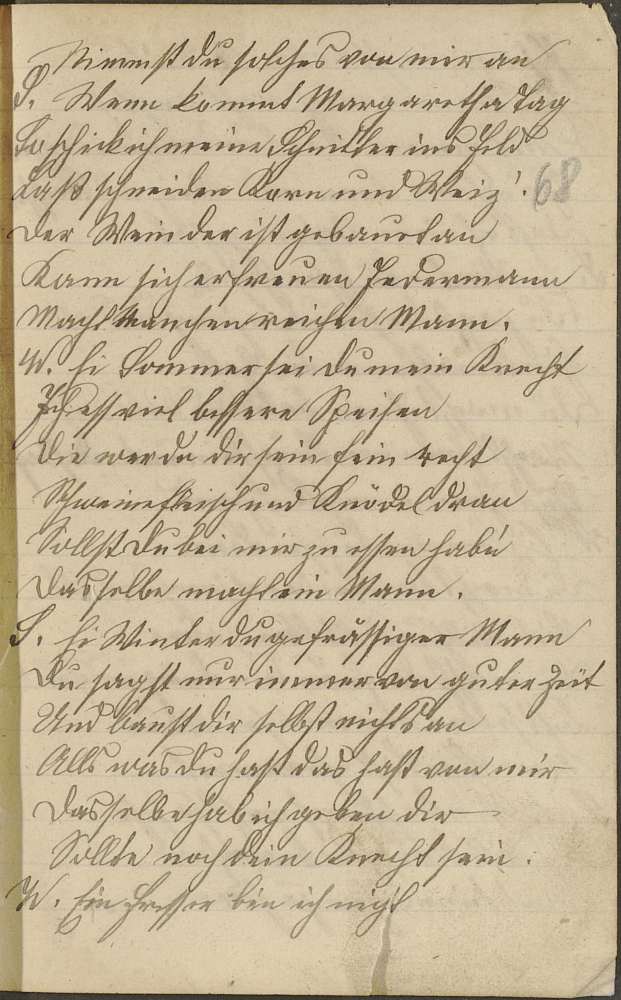 Nimmst du solches von mir an
S. Wenn kommt Margaretha Tag
So schick ich meine Schnitter ins Feld
Laß schneiden Korn und Weiz'.
68
Der Wein der ist gebauet an
Kann sich erfreuen Jedermann
Macht Manchen reichen Mann.
W. Ei Sommer sei du mein Knecht
Ich ess viel bessere Speisen
Die werdn dir sein fein recht
Schweinefleisch und Knödel dran
Sollst du bei mir zu essen hab'n
Dasselbe macht ein Mann.
S. Ei Winter du gefrässiger Mann
Du sagst nur immer von guter Zeit
Und baust dir selbst nichts an
Alls was du hast das hast von mir
Dasselbe hab ich geben dir
Sollte noch dein Knecht sein.
W. Ein Fresser bin ich nicht